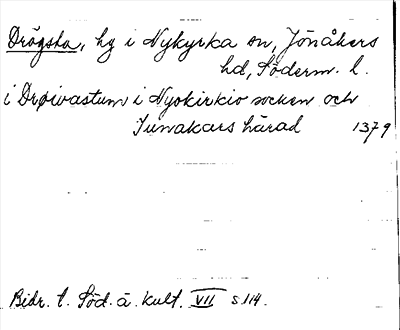 Drögsta, hg i Nykyrka sn, Jönåkers
hd, Söderm. l.
i Drøivastum i Nyokirkio socken och
Junakars härad 1379
Bidr. t. Söd. ä. kult. VII s. 114.